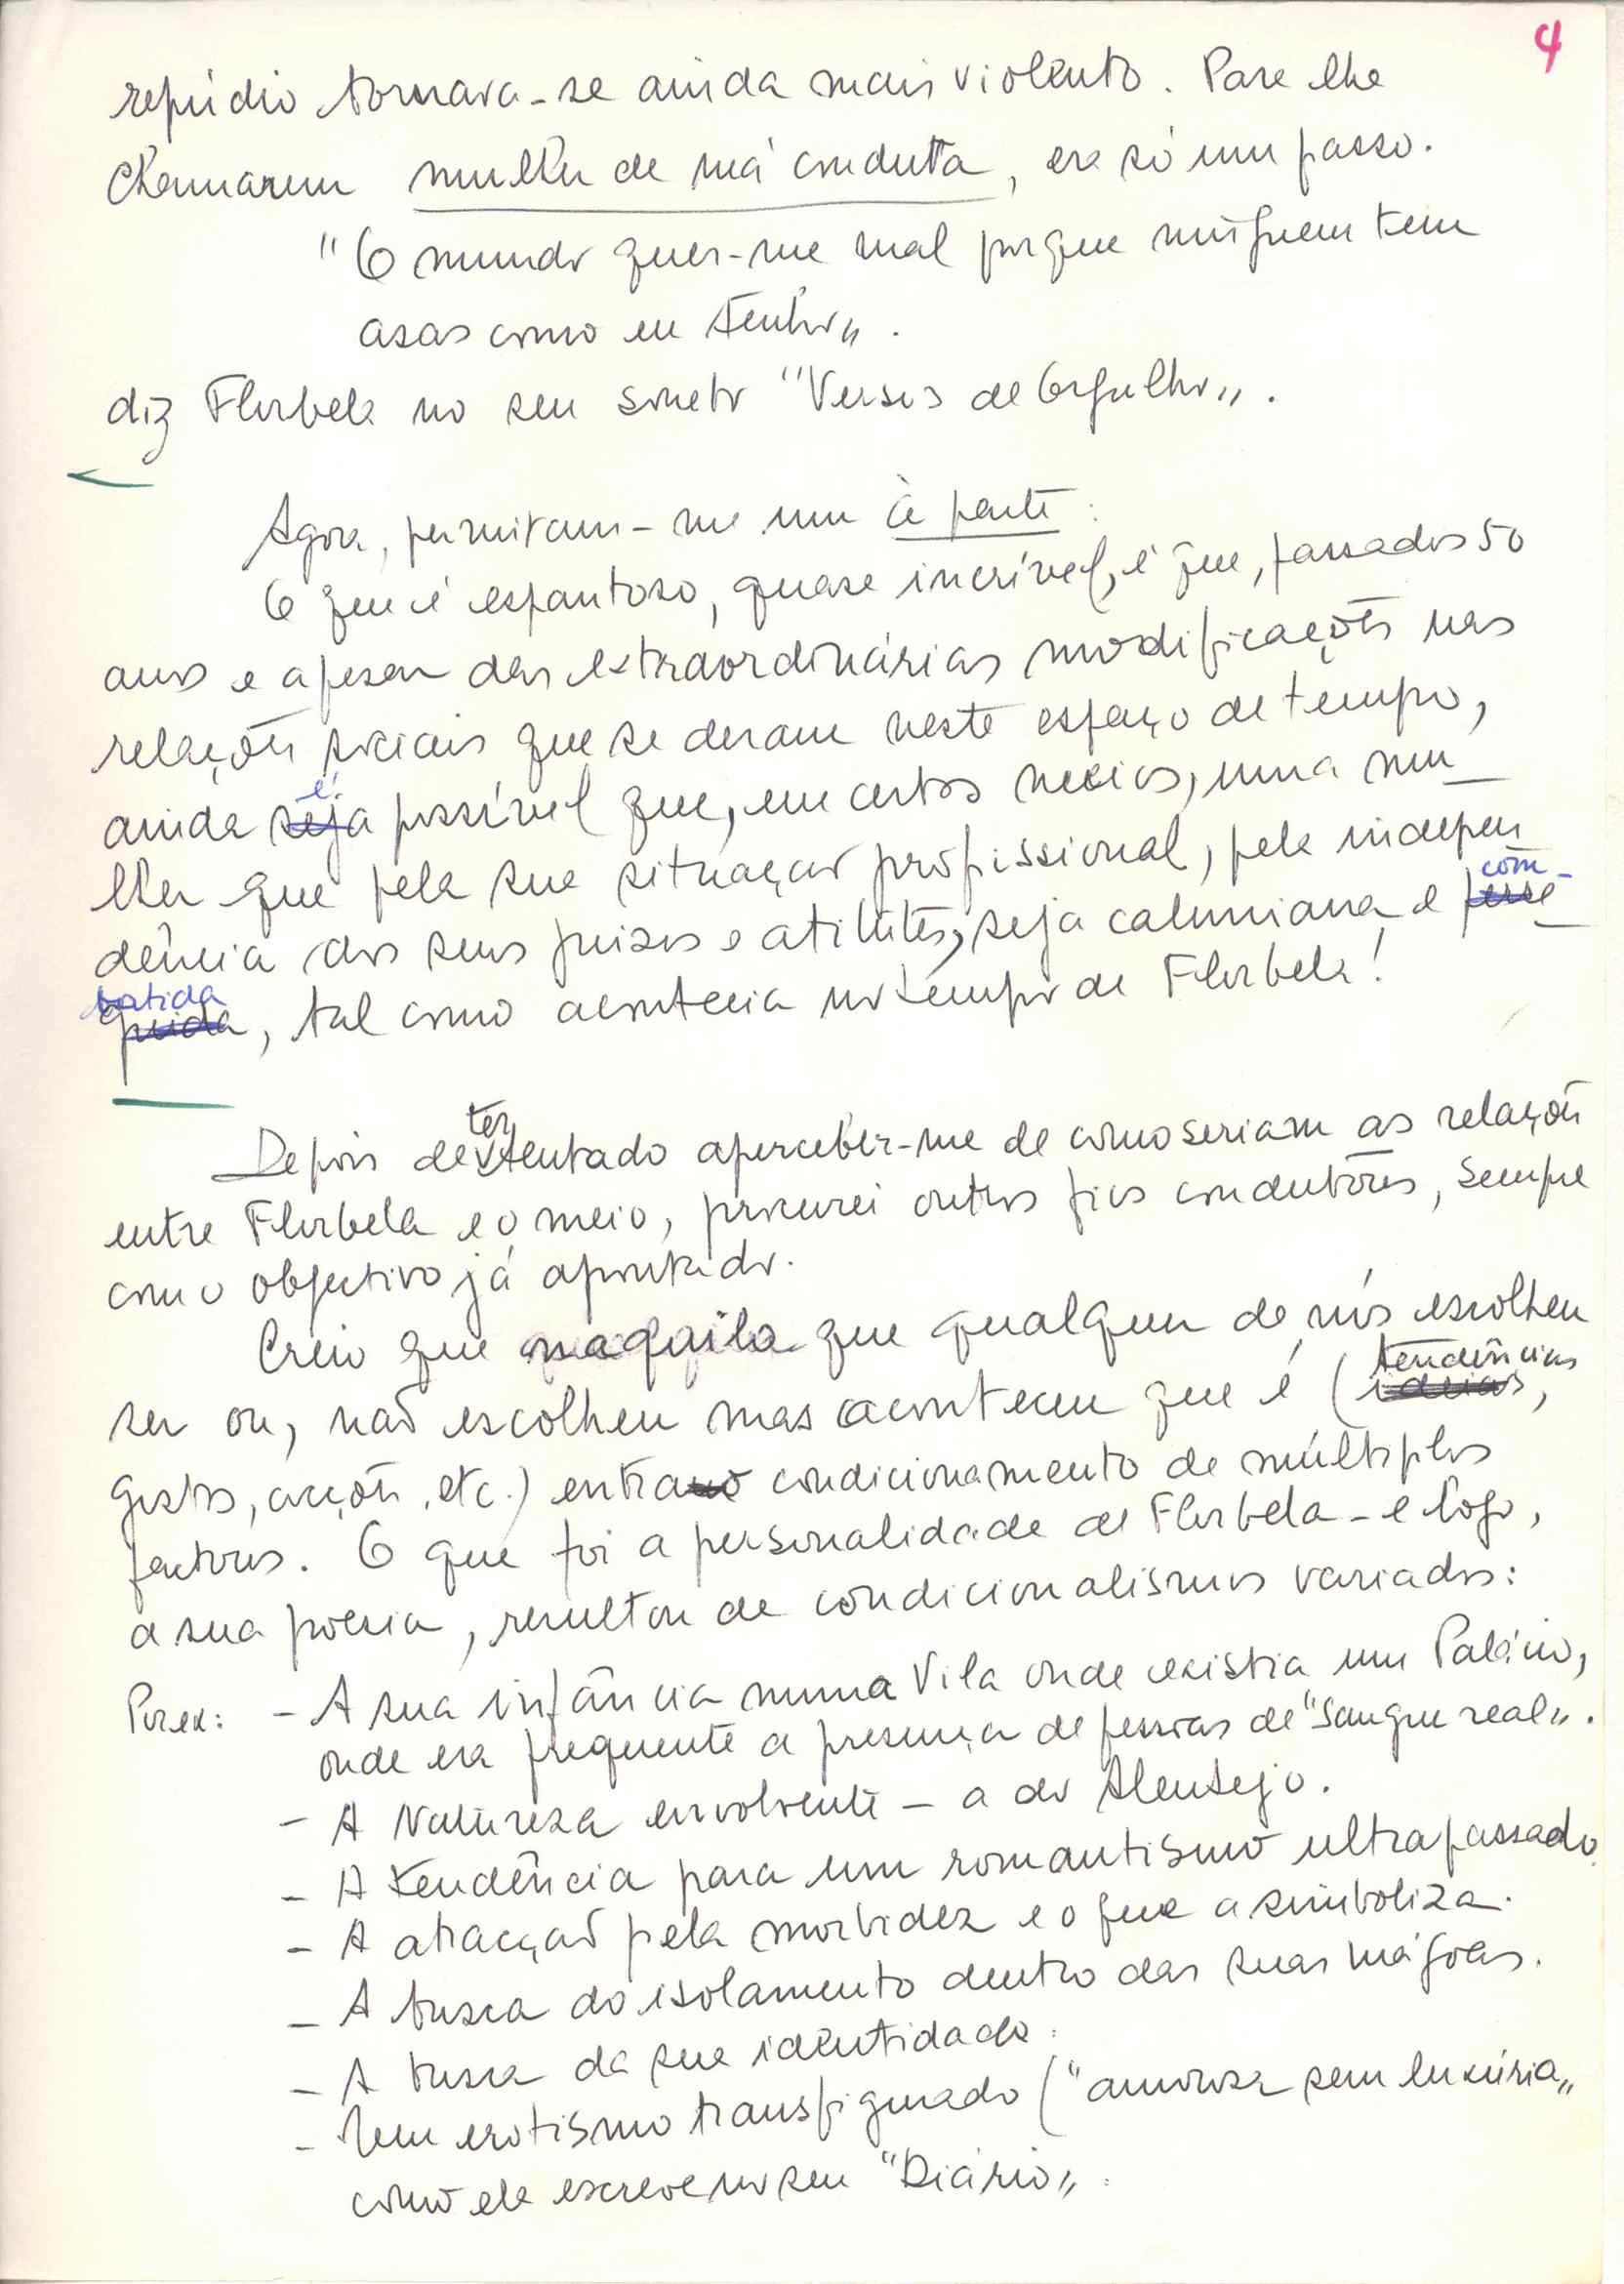 4
repúdio tornava-se ainda mais violento. Para lhe
chamarem mulher de má conduta, era só um passo.
"O mundo quer-me mal porque ninguem tem
asas como eu tenho".
diz Florbela no seu soneto "Versos de Orgulho".
Agora, permitam-me um à parte:
O que é espantoso, quase incrível, é que, passados 50
anos e apesar das extraordinárias modificações nas
relações sociais que se deram neste espaço de tempo,
ainda seja é possível que, em certos meios, uma mu-
lher que pela sua situação profissional, pela indepen
dência dos seus juizos e atitudes, seja caluniada e perse- com-
guida batida, tal como acontecia no tempo de Florbela!
Depois de ter tentado aperceber-me de como seriam as relações
entre Florbela e o meio, procurei outros fios condutores, sempre
com o objectivo já apontado.
Creio que naquilo que qualquer de nós escolheu
ser ou, não escolheu mas aconteceu que é (ideias tendências,
gestos, acções, etc.) entra o condicionamento de múltiplos
factores. O que foi a personalidade de Florbela - e logo,
a sua poesia, resultou de condicionalismos variados:
Por ex: - A sua infância numa Vila onde existia um Palácio,
onde era frequente a presença de pessoas de "sangue real".
- A Natureza envolvente - a do Alentejo.
- A tendência para um romantismo ultrapassado.
- A atracção pela morbidez e o que a simboliza.
- A busca do isolamento dentro das suas mágoas.
- A busca da sua identidade.
- Um erotismo transfigurado ("amorosa sem luxúria"
como ela escreve no seu "Diário".